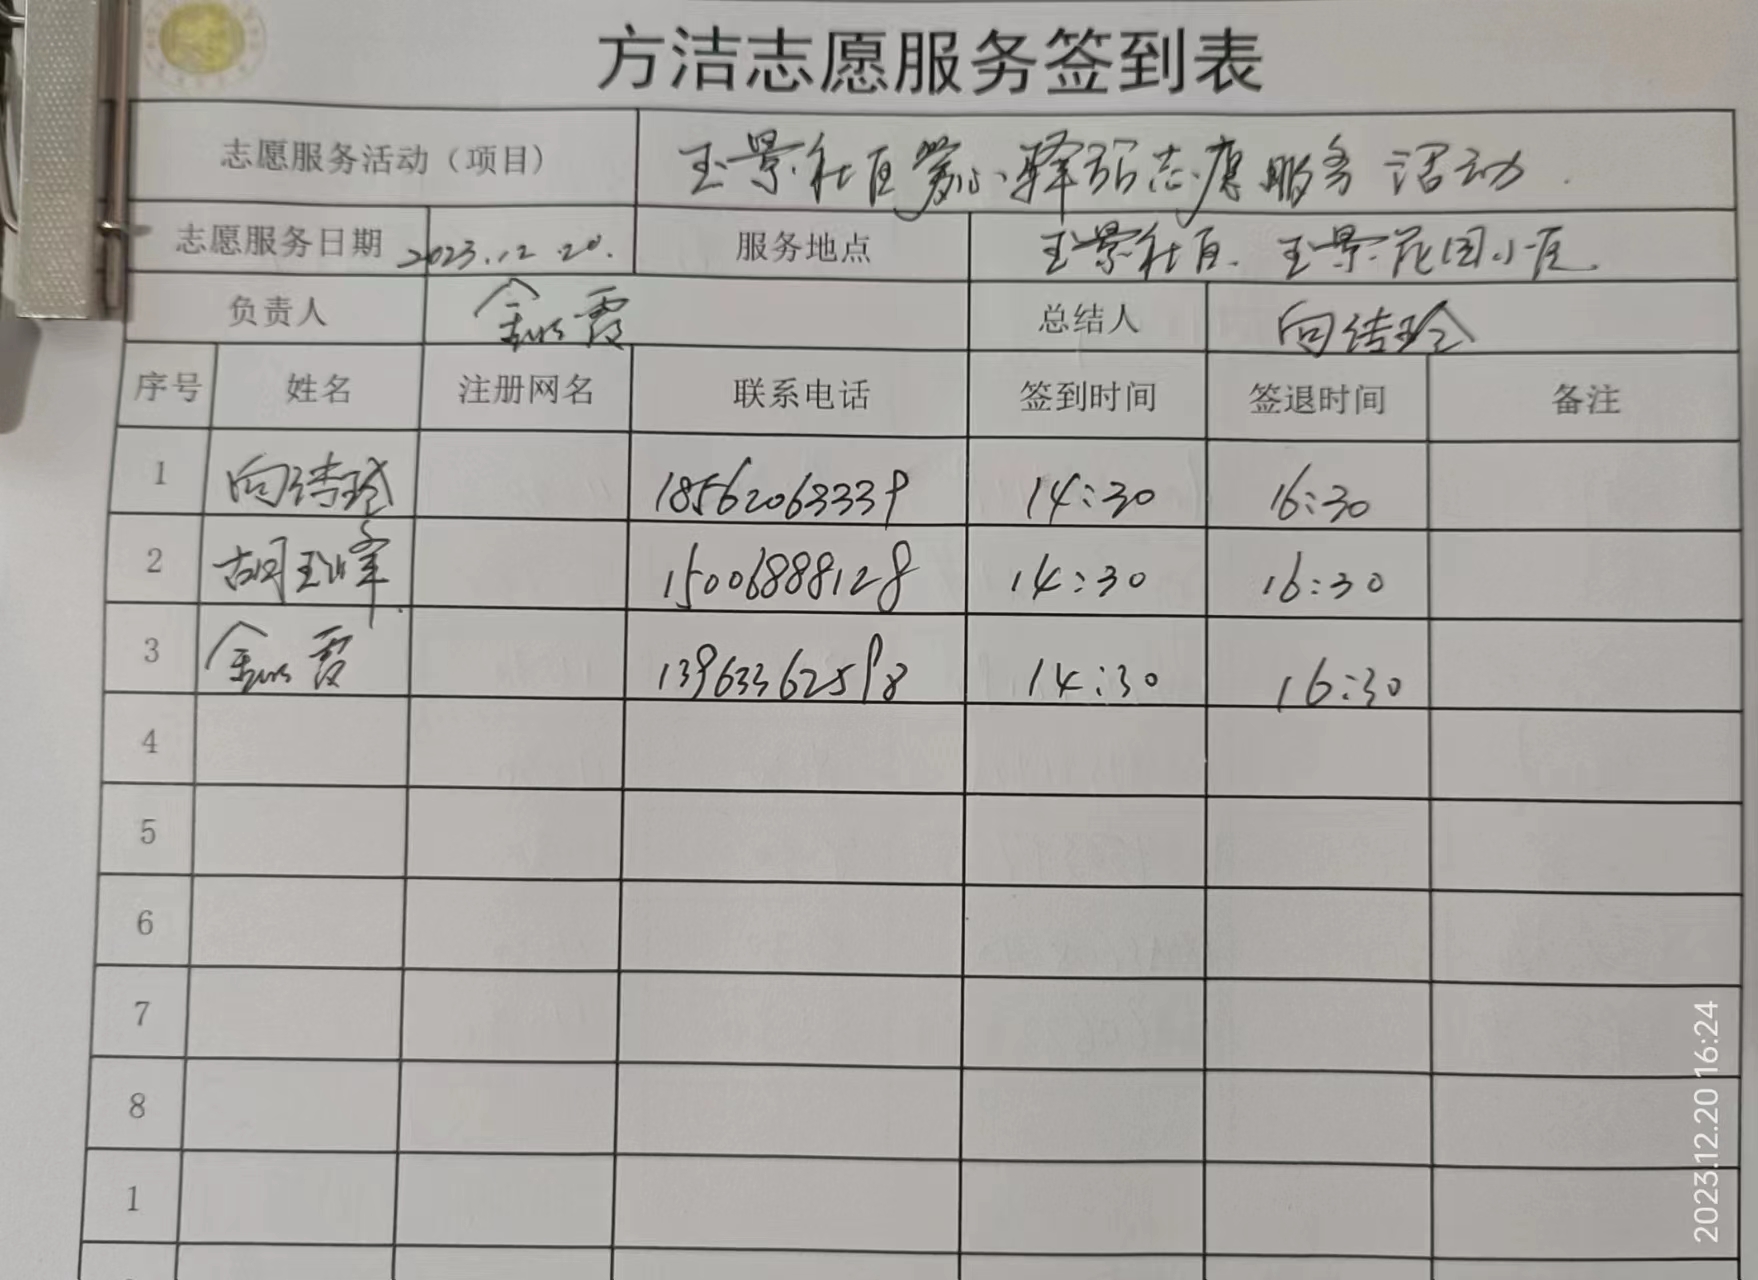 方洁志愿服务签到表
志愿服务活动（项目） 玉景社区 志愿服务活动
志愿服务日期 2023.12.20. 服务地点 玉景社区、玉景花园小区
负责人 霞 总结人 向结玲
序号 姓名 注册网名 联系电话 签到时间 签退时间 备注
1 向结玲 18562063339 14:30 16:30
2 胡 峰 15006888128 14:30 16:30
3 霞 13963362598 14:30 16:30
4
5
6
7
8
1
2023.12.20 16:24